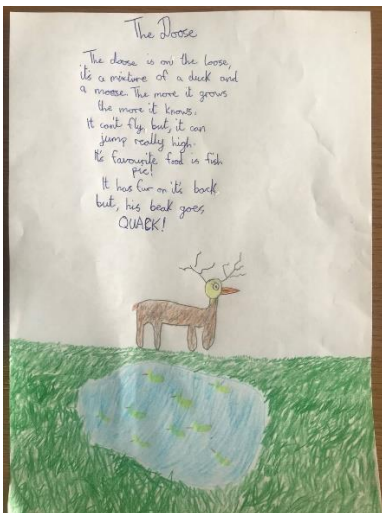 The Doose
The doose is on the loose,
it's a mixture of a duck and
a moose. The more it grows
the more it knows.
It can't fly but, it can
jump really high.
It's favourite food is fish
pie!
It has fur on it's back
but, his beak goes,
QUACK!